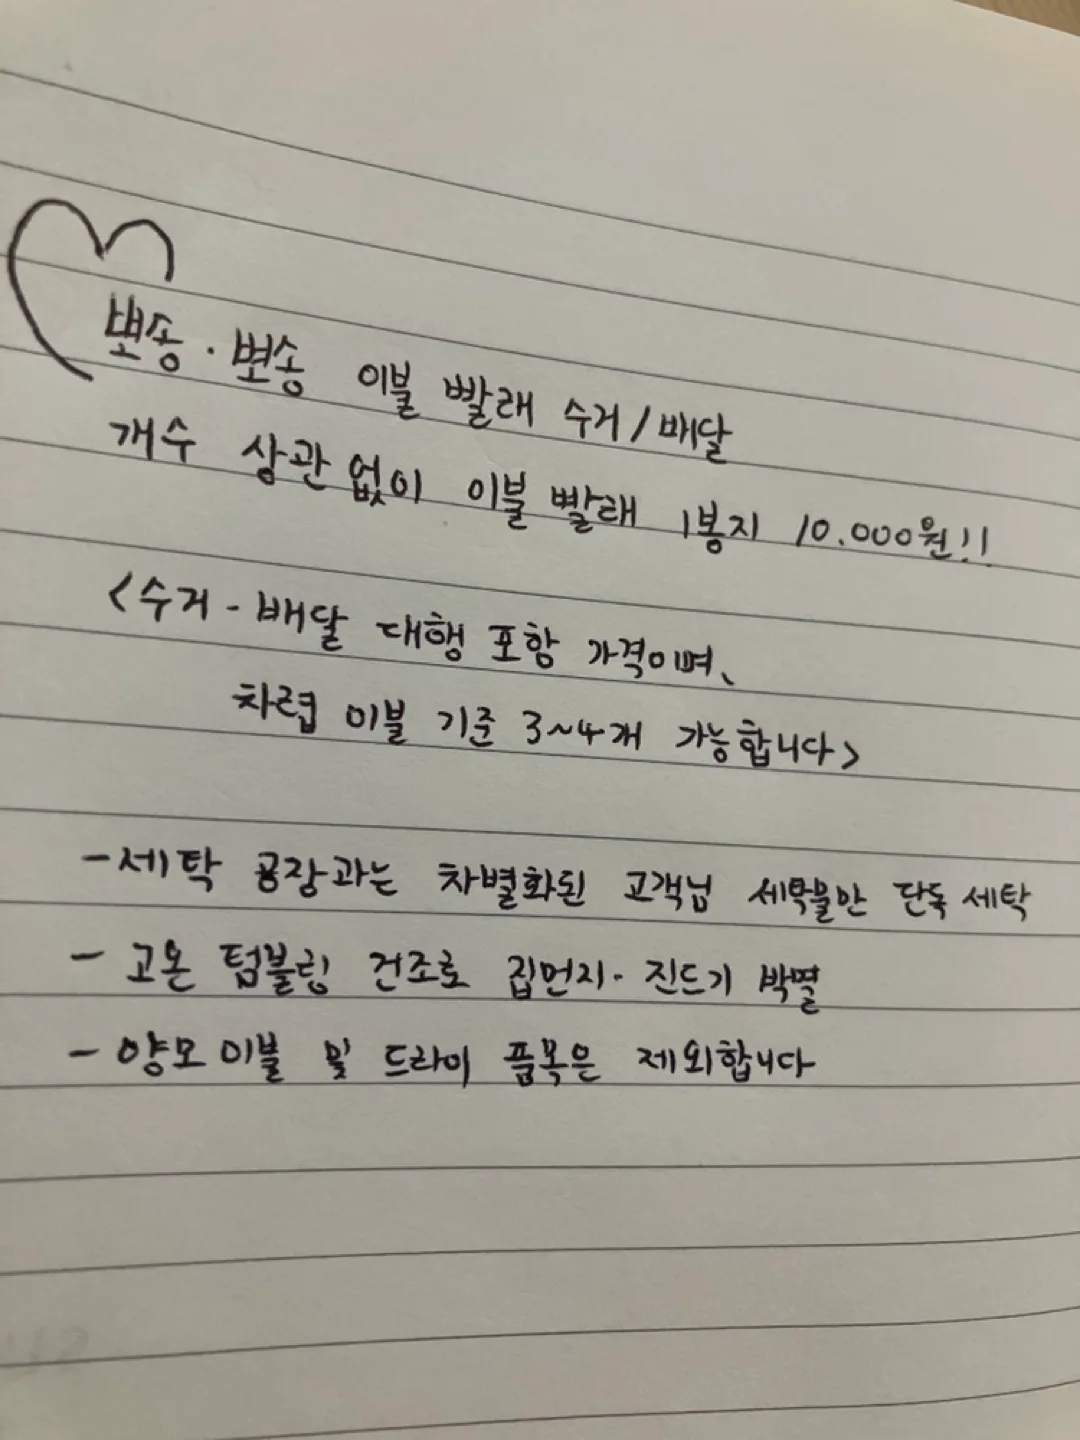 뽀송·뽀송 이불 빨래 수거/배달
개수 상관없이 이불빨래 1봉지 10.000원!!
<수거-배달 대행 포함 가격이며,
차렵 이불 기준 3~4개 가능합니다>
-세탁 공장과는 차별화된 고객님 세탁물만 단독 세탁
- 고온 텀블링 건조로 집먼지·진드기 박멸
- 양모이불 및 드라이 품목은 제외합니다